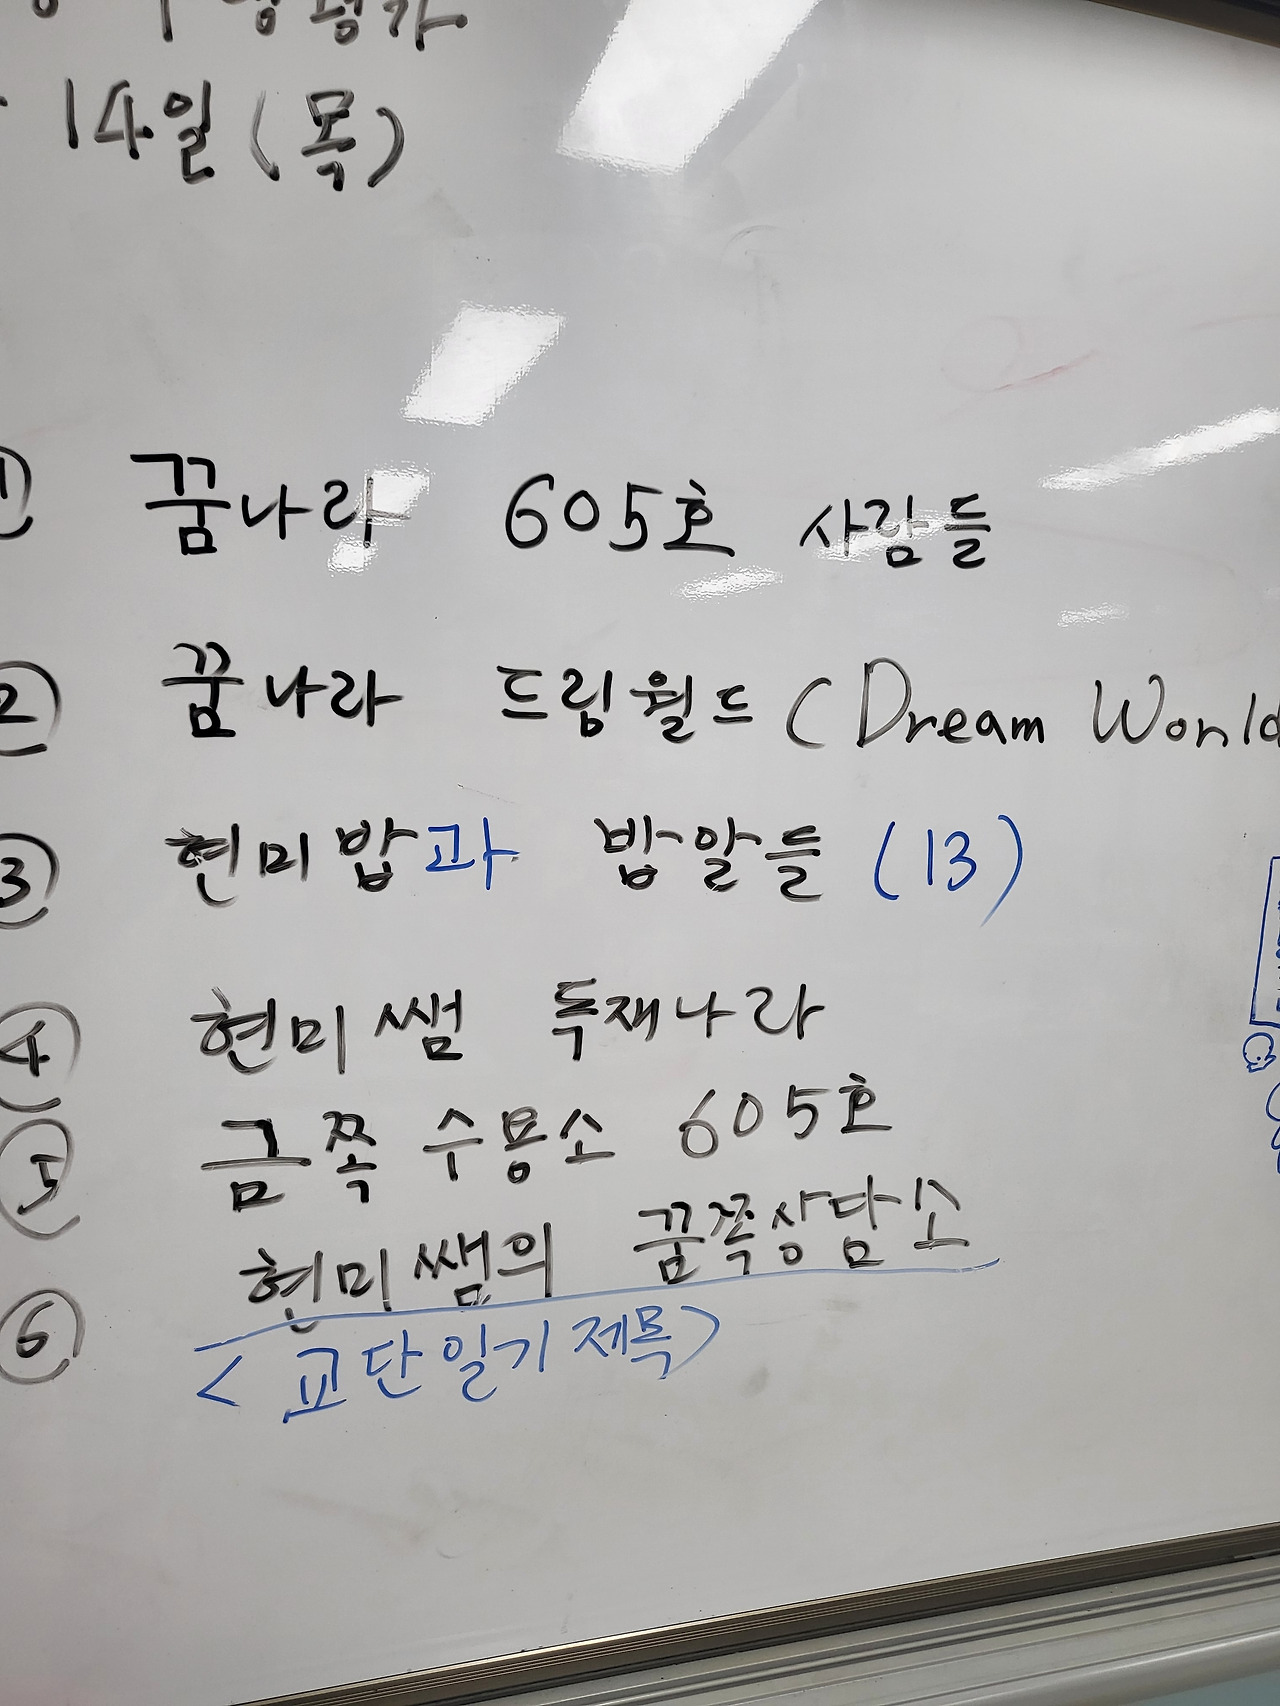 14일(목)
① 꿈나라 605호 사람들
② 꿈나라 드림월드 (Dream World
③ 현미밥과 밥알들 (13)
④ 현미쌤 독재나라
⑤ 금쪽 수용소 605호
⑥ 현미쌤의 꿈쪽상담소
<교단일기 제목>